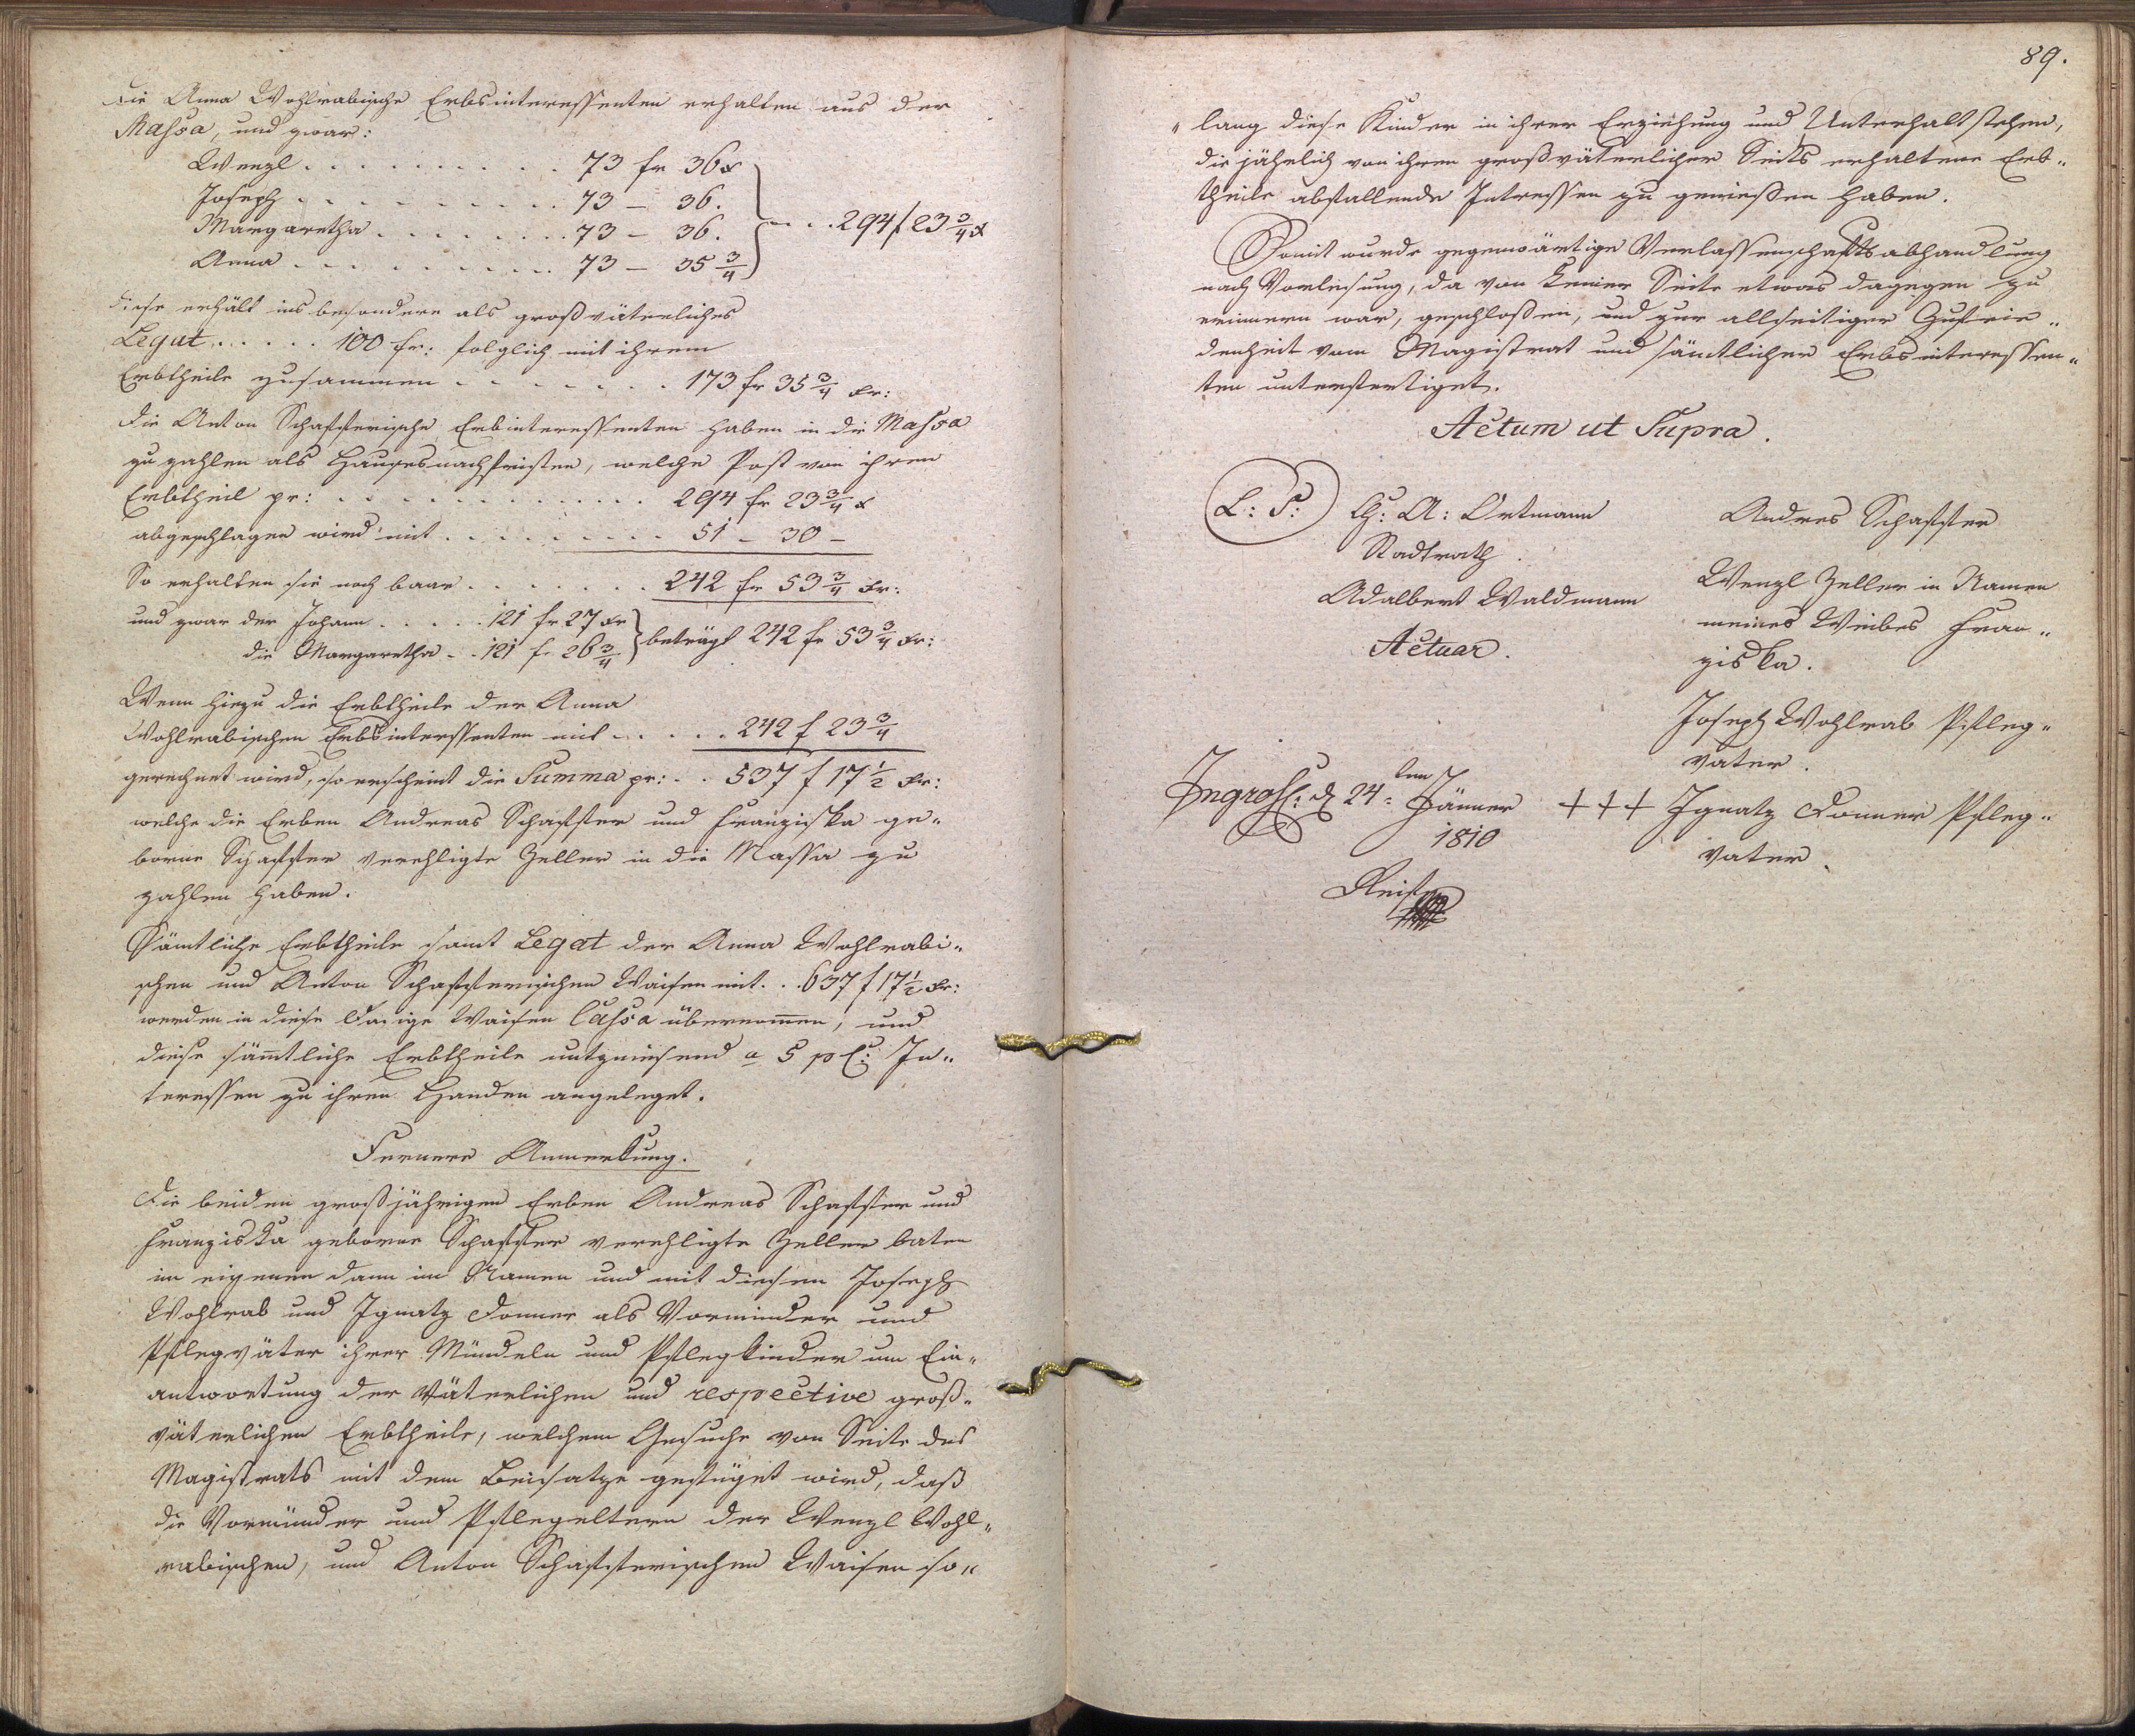 Die Anna Wohlrabische Erbsinteressenten erhalten aus der
Massa, und zwar:
Wenzl . . . . . . . . . . 73 fr 36 x
Joseph . . . . . . . . . . 73 – 36.
Margaretha . . . . . . . . 73 – 36.
Anna . . . . . . . . . . 73 – 35 3/4
. . . 294 f 23 3/4 x
diese erhält ins besondere als großväterliches
Legat . . . . . 100 fr: folglich mit ihrem
Erbtheile zusammen . . . . . . . 173 fr 35 3/4 xr:
Die Anton Schaffterische Erbinteressenten haben in die Massa
zu zahlen als Haußesnachfristen, welche Post von ihrem
Erbtheil pr: . . . . . . . . . . . 294 fr 23 3/4 x
abgeschlagen wird mit . . . . . . . . 51 – 30 –
So erhalten sie noch baar . . . . . . . 242 fr 53 3/4 xr:
und zwar der Johann . . . . . 121 fr 27 xr
die Margaretha . . 121 f. 26 3/4
beträgt 242 fr 53 3/4 xr:
Wenn hiezu die Erbtheile der Anna
Wohlrabischen Erbsinterssenten mit . . . . . 242 f 23 3/4
gerechnet wird, so erscheint die Summa pr: . . 537 f 17 1/2 xr:
welche die Erben Andreas Schaffter und Franziska ge„
borne Schaffter verehligte Zeller in die Massa zu
zahlen haben.
Sämtliche Erbtheile samt Legat der Anna Wohlrabi„
schen und Anton Schaffterischen Waisen mit . . 637 f 17 1/2 xr:
werden in diese Waisen Cassa übernomen, und
diese sämtliche Erbtheile a 5 p C: In„
teressen zu ihren Handen angeleget.
Fernere Anmerkung.
Die beiden großjährigen Erben Andreas Schaffter und
Franziska geborne Schaffter verehligte Zeller baten
im eigenen dann im Namen und mit diesen Joseph
Wohlrab und Ignatz Donner als Vorminder und
Pflegväter ihrer Mündeln und Pflegkinder um Ein„
antwortung der Väterlichen und respective groß„
väterlichen Erbtheile, welchem Gesuche von Seite des
Magistrats mit dem Beisatze gefüget wird, daß
die Vormünder und Pflegeltern der Wenzl Wohl„
rabischen, und Anton Schaffterischen Waisen so„
89.
„ lang diese Kinder in ihrer Erziehung und Unterhalt stehen,
die jährlich von ihren großväterlicher Seits erhaltene Erb„
theile abfallende Intressen zu geniessen haben.
Somit wurde gegenwärtige Verlassenschaftsabhandlung
nach Vorlesung, da von keiner Seite etwas dagegen zu
erinnern war, geschloßen, und zur allseitiger Zufrie„
denheit vom Magistrat und sämtlicher Erbsinteressen„
ten unterfertiget.
Actum ut Supra.
L: S: A: Ortmann
Stadtrath.
Adalbert Waldmann
Actuar.
Andres Schaffter
Wenzl Zeller in Namen
meines Weibes Fran„
ziska.
Joseph Wohlrab Pfleg„
vater.
+++ Ignatz Donner Pfleg„
vater.
Ingross: d 24ten Jänner
1810